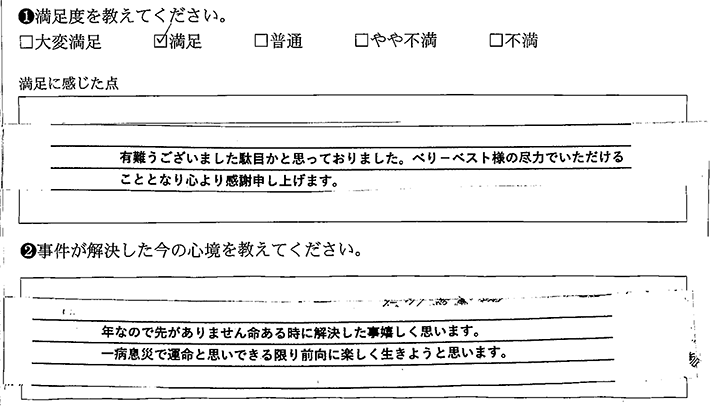 ❶満足度を教えてください。
□大変満足 ☑満足 □普通 □やや不満 □不満
満足に感じた点
有難うございました駄目かと思っておりました。べリーベスト様の尽力でいただける
こととなり心より感謝申し上げます。
❷事件が解決した今の心境を教えてください。
年なので先がありません命ある時に解決した事嬉しく思います。
一病息災で運命と思いできる限り前向に楽しく生きようと思います。